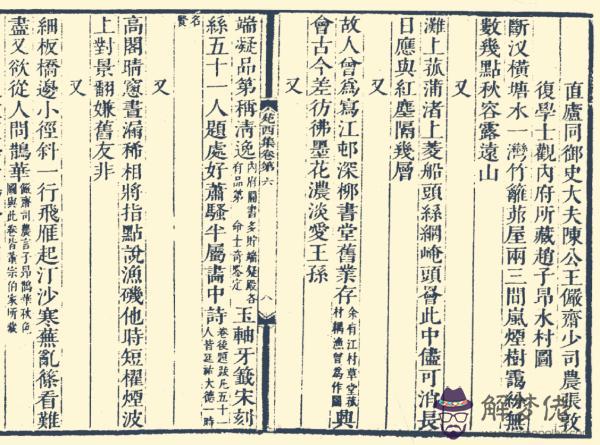 直廬同御史大夫陳公王儼齋少司農張敦
復學士觀內府所藏趙子昂水村圖
斷汊橫塘水一灣竹籬茆屋兩三間嵐煙樹靄紛無
數幾點秋容露遠山
又
灘上菰蒲渚上菱船頭絲網崦頭罾此中儘可消長
日應與紅塵隔幾層
又
故人曾為寫江邨深栁書堂舊業存余有江村草堂孫村耦漁曾爲作圖興
會古今差彷彿墨花濃淡愛王孫
又
苑西集卷第六
八
端凝品第稱清逸內府圖書多貯端凝殿各有品第命士奇鑒定玉軸牙籤宋刻
絲五十一人題處好蕭騷半屬畵中詩卷後題跋凡五十一人皆延祐大德一時
名賢
又
高閣晴窻晝漏稀相將指點說漁磯他時短櫂煙波
上對景翻嫌舊友非
又
細板橋邊小徑斜一行飛雁起汀沙寒蕪亂篠看難
盡又欲從人問鵲華儼齋司農言子昂鵲華秋色圖與此卷皆蕭宗伯家所藏
解梦佬